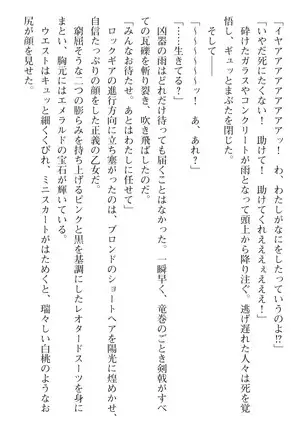 「イヤアアアアアアアアアアッ！　わ、わたしがなにをしたっていうのよ!?」
「いやだ死にたくない！　助けて！　助けてくれえええぇえええ！」
　砕けたガラスやコンクリートが雨となって頭上から降り注ぐ。逃げ遅れた人々は死を覚
悟し、ギュッとまぶたを閉じた。
　そして――
「～～～～～ッ！　あ、あれ？」
「……生きてる？」
　凶器の雨はどれだけ待っても届くことはなかった。一瞬早く、竜巻のごとき剣戟がすべ
ての瓦礫を斬り裂き、吹き飛ばしたのだ。
「みんなお待たせ。あとはわたしに任せて」
　ロックギアの進行方向に立ち塞がったのは、ブロンドのショートヘアを陽光に煌めかせ、
自信たっぷりの顔をした正義の乙女だ。
　窮屈そうな二つの膨らみを持ち上げるピンクと黒を基調にしたレオタードスーツを身に
まとい、胸元にはエメラルドの宝石が輝いている。
　ウエストはキュッと細くくびれ、ミニスカートがはためくと、瑞々しい白桃のようなお
尻が顔を見せた。